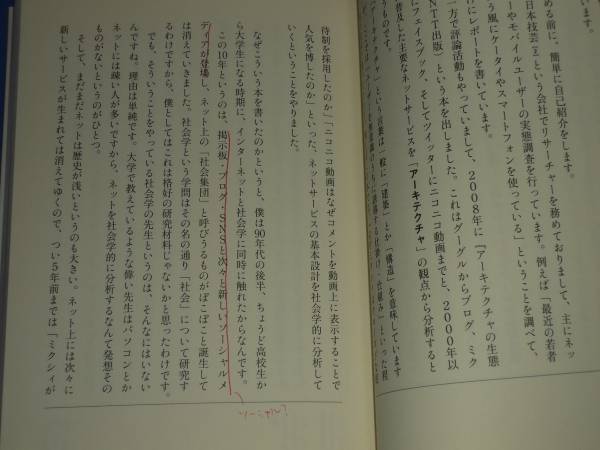 います。
める前に、簡単に自己紹介をします。
日本技芸(※)という会社でリサーチャーを務めておりまして、主にネッ
ーやモバイルユーザーの実態調査を行っています。例えば「最近の若者
う風にケータイやスマートフォンを使っている」ということを調べて、
けにレポートを書いています。
一方で評論活動もやっていまして、2008年に『アーキテクチャの生態
TT出版)という本を出しました。これはグーグルからブログ、ミク
にフェイスブック、そしてツイッターにニコニコ動画までと、2000年以
普及した主要なネットサービスを「アーキテクチャ」の観点から分析すると
うものです。
アーキテクチャという言葉は一般に「建築」とか「構造」を意味しています
待制を採用したのか」「ニコニコ動画はなぜコメントを動画上に表示することで
人気を博したのか」といった、ネットサービスの基本設計を社会学的に分析して
いくということをやりました。
なぜこういう本を書いたのかというと、僕は90年代の後半、ちょうど高校生か
ら大学生になる時期に、インターネットと社会学に同時に触れたからなんです。
この10年というのは、掲示板・ブログ・SNSと次々と新しいソーシャルメ
ディアが登場し、ネット上の「社会集団」と呼びうるものがぽこぽこと誕生して
は消えていきました。社会学という学問はその名の通り「社会」について研究す
るわけですから、僕としてはこれは格好の研究材料じゃないかと思ったわけです。
でも、そういうことをやっている社会学の先生というのは、そんなにはいない
んですね。理由は単純です。大学で教えているような偉い先生はパソコンとか
ネットには疎い人が多いですから、ネットを社会学的に分析するなんて発想その
ものがないというのがひとつ。
そして、まだまだネットは歴史が浅いというのも大きい。ネット上には次々に
新しいサービスが生まれては消えてゆくので、つい5年前までは「ミクシィが
ソーシャル?